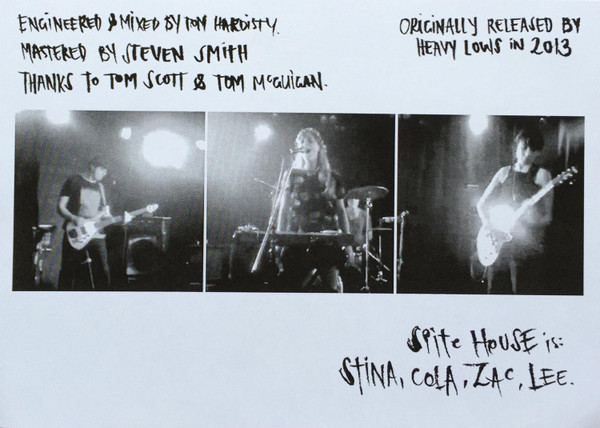 ENGINEERED & MIXED BY TOM HARDISTY.
MASTERED BY STEVEN SMITH
THANKS TO TOM SCOTT & TOM McGUIGAN.
ORIGINALLY RELEASED BY
HEAVY LOWS IN 2013
SPITE HOUSE is:
STINA, COLA, ZAC, LEE.